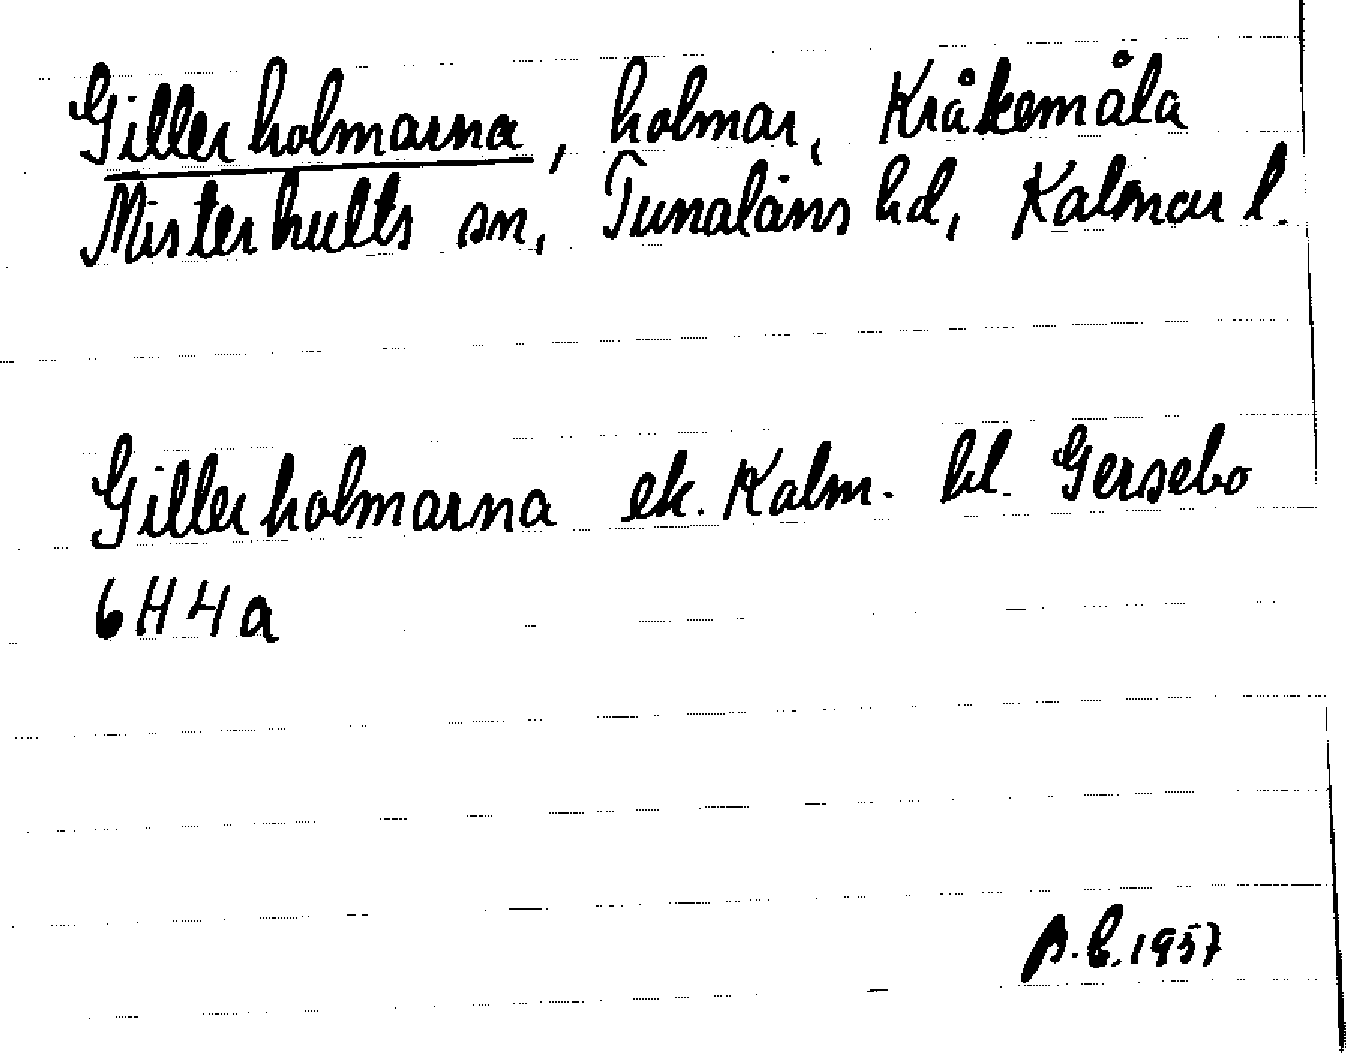 Gillerholmarna, holmar, Kråkemåla
Misterhults sn, Tunaläns hd, Kalmar l.
Gillerholmarna ek. Kalm. bl. Gersebo
6H4a
B.C. 1957